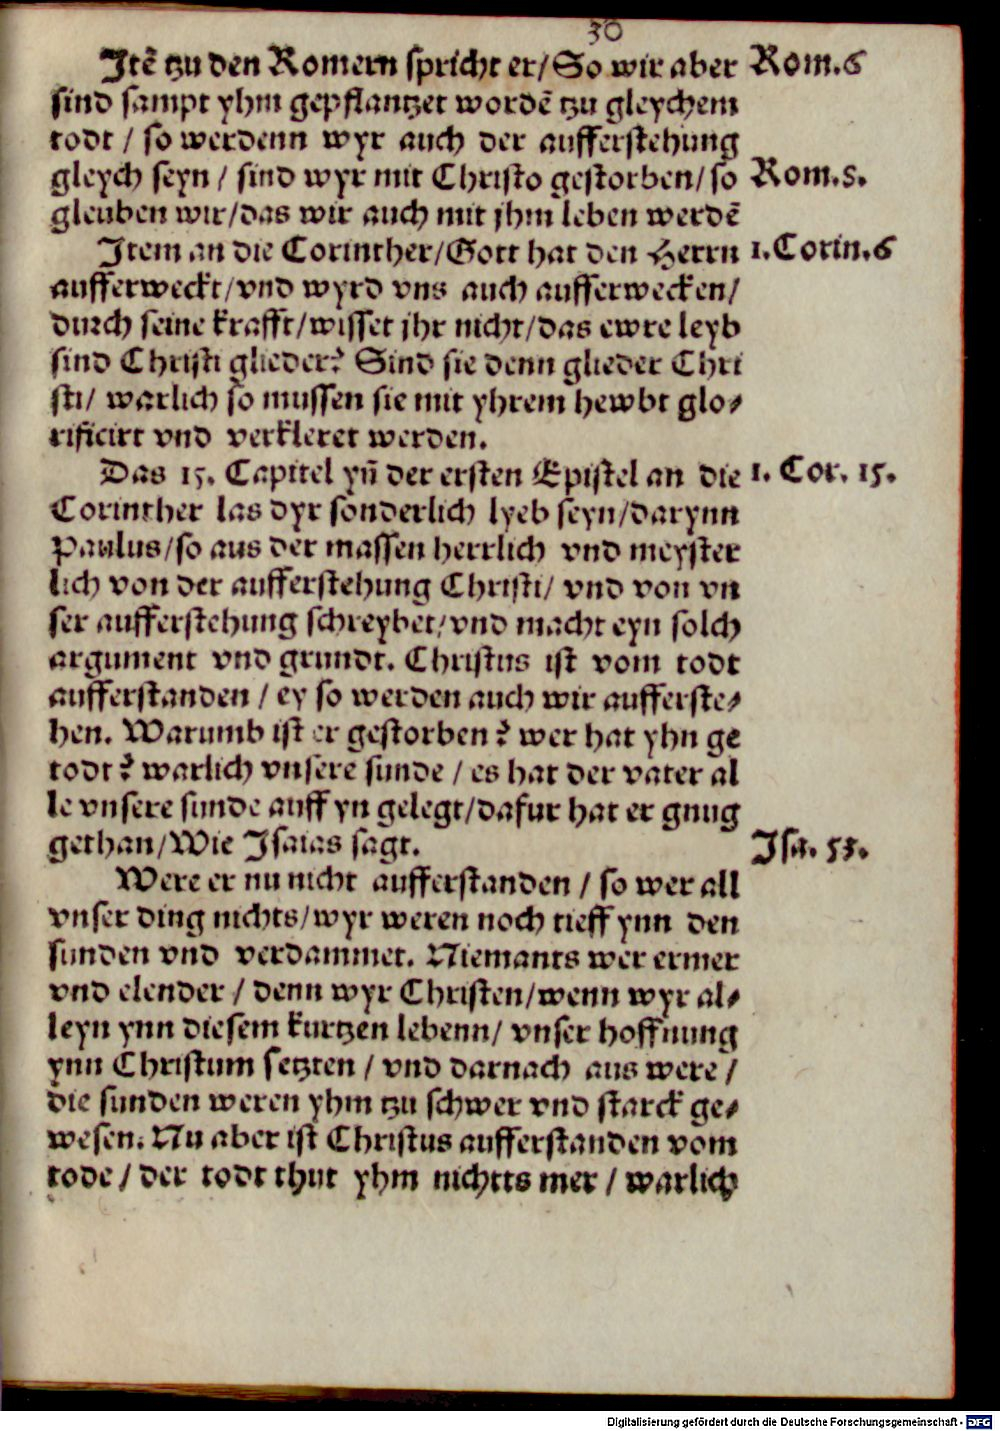 30
Jtẽ tzu den Romern spricht er/So wir aber Rom.6
sind sampt yhm gepflantzet wordẽ tzu gleychem
todt / so werdenn wyr auch der aufferstehung
gleych seyn / sind wyr mit Christo gestorben/so Rom.5.
gleuben wir/das wir auch mit jhm leben werdẽ
Jtem an die Corinther/Gott hat den Herrn 1.Corin.6
aufferweckt/vnd wyrd vns auch aufferwecken/
durch seine krafft/wisset jhr nicht/das ewre leyb
sind Christi glieder? Sind sie denn glieder Chri
sti/ warlich so mussen sie mit yhrem hewbt glo⸗
rificirt vnd verkleret werden.
Das 15. Capitel yn̄ der ersten Epistel an die 1. Cor. 15.
Corinther las dyr sonderlich lyeb seyn/darynn
Paulus/so aus der massen herrlich vnd meyster
lich von der aufferstehung Christi/ vnd von vn
ser aufferstehung schreybet/vnd macht eyn solch
argument vnd grundt. Christus ist vom todt
aufferstanden / ey so werden auch wir aufferste⸗
hen. Warumb ist er gestorben? wer hat yhn ge
todt? warlich vnsere sunde / es hat der vater al
le vnsere sunde auff yn gelegt/dafur hat er gnug
gethan/Wie Jsaias sagt. Jsa. 53.
Were er nu nicht aufferstanden / so wer all
vnser ding nichts/wyr weren noch tieff ynn den
sunden vnd verdammet. Niemants wer ermer
vnd elender / denn wyr Christen/wenn wyr al⸗
leyn ynn diesem kurtzen lebenn/ vnser hoffnung
ynn Christum setzten / vnd darnach aus were /
die sunden weren yhm tzu schwer vnd starck ge⸗
wesen. Nu aber ist Christus aufferstanden vom
tode / der todt thut yhm nichtts mer / warlich
Digitalisierung gefördert durch die Deutsche Forschungsgemeinschaft - DFG